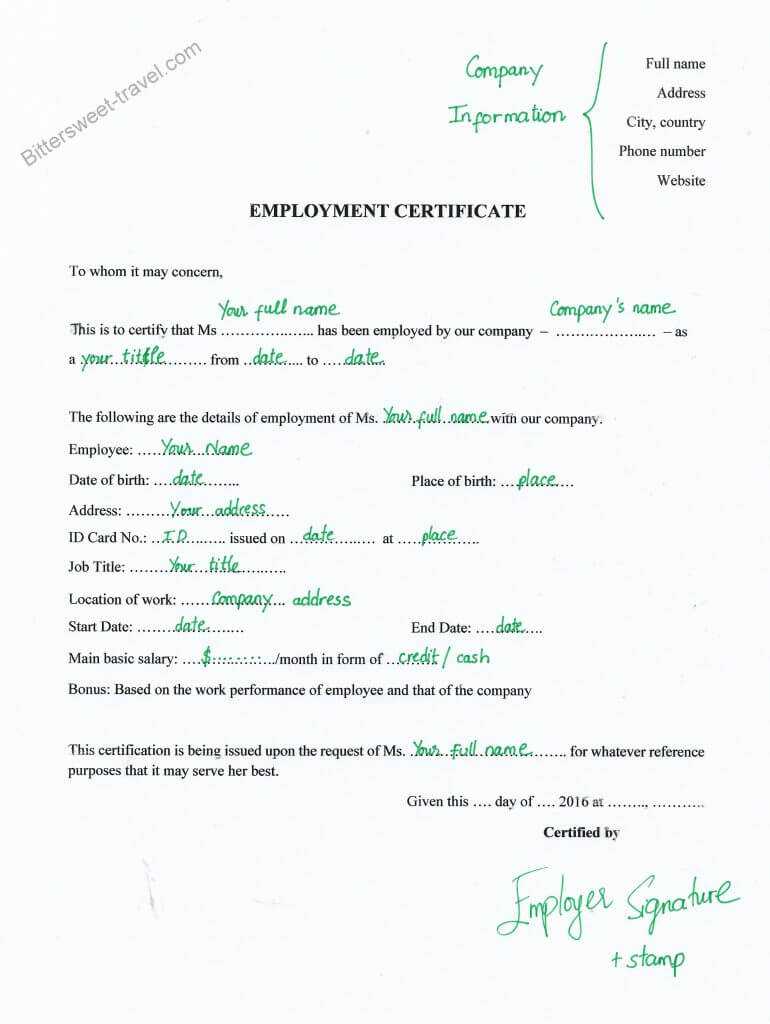 Bittersweet-travel.com
Company
Information
Full name
Address
City, country
Phone number
Website
EMPLOYMENT CERTIFICATE
To whom it may concern,
Your full name Company's name
This is to certify that Ms .................... has been employed by our company – .................... – as
a .your...tittle......... from ..date..... to .....date..
The following are the details of employment of Ms. .Your..full..name.with our company.
Employee: .....Your...Name
Date of birth: ....date........ Place of birth: ...place....
Address: .........Your...address.....
ID Card No.: ..I.D.......... issued on ...date.......... at .....place.......
Job Title: ........Your...title...........
Location of work: ......Company... address
Start Date: .......date......... End Date: ....date....
Main basic salary: ....$:..:..:..:.../month in form of ...credit / cash
Bonus: Based on the work performance of employee and that of the company
This certification is being issued upon the request of Ms. ..Your..full..name........ for whatever reference
purposes that it may serve her best.
Given this .... day of .... 2016 at ........, ............
Certified by
Employer Signature
+ stamp